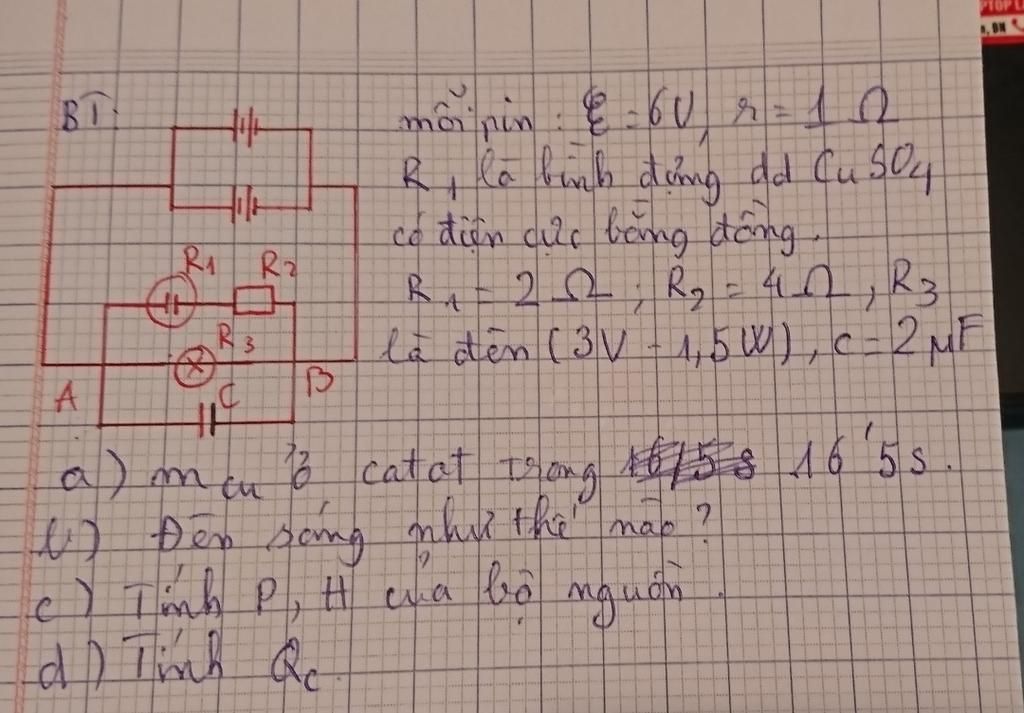 BT:
mỗi pin: ξ = 6V, r = 1 Ω
R1 là bình đựng dd CuSO4
có điện cực bằng đồng.
R1 = 2 Ω; R2 = 4 Ω, R3
là đèn (3V - 1,5W), c = 2 μF
R1 R2
R3
A C B
a) mCu ở catat trong 16'5s.
b) Đèn sáng như thế nào?
c) Tính P, H của bộ nguồn.
d) Tính Qc.
PTOP L